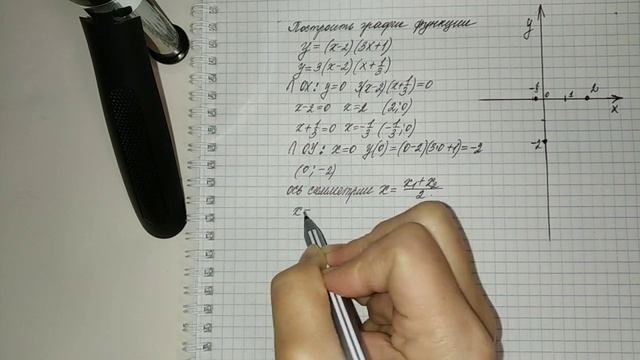 Построить график функции
y = (x-2)(3x+1)
y = 3(x-2)(x+1/3)
∩ OX: y=0 3(x-2)(x+1/3)=0
x-2=0 x=2 (2;0)
x+1/3=0 x=-1/3 (-1/3;0)
∩ OY: x=0 y(0)=(0-2)(3·0+1)=-2
(0;-2)
ось симметрии x = x₁+x₂/2
x=
y
0 1 2
x
-2